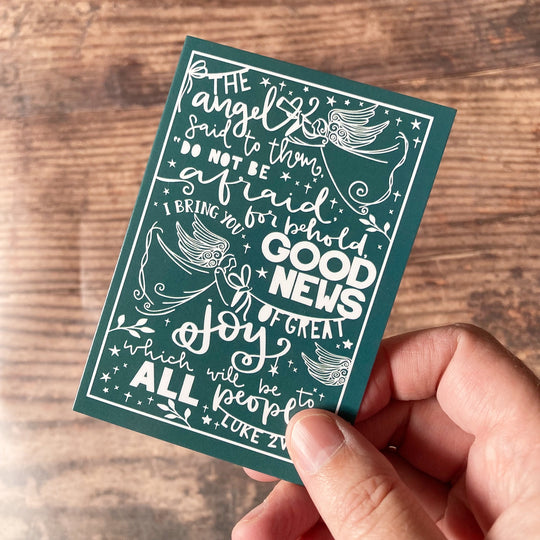 THE
angel
said to them,
"DO NOT BE
afraid.
I BRING YOU for behold,
GOOD
NEWS
OF GREAT
joy
which will be to
ALL people
LUKE 2V